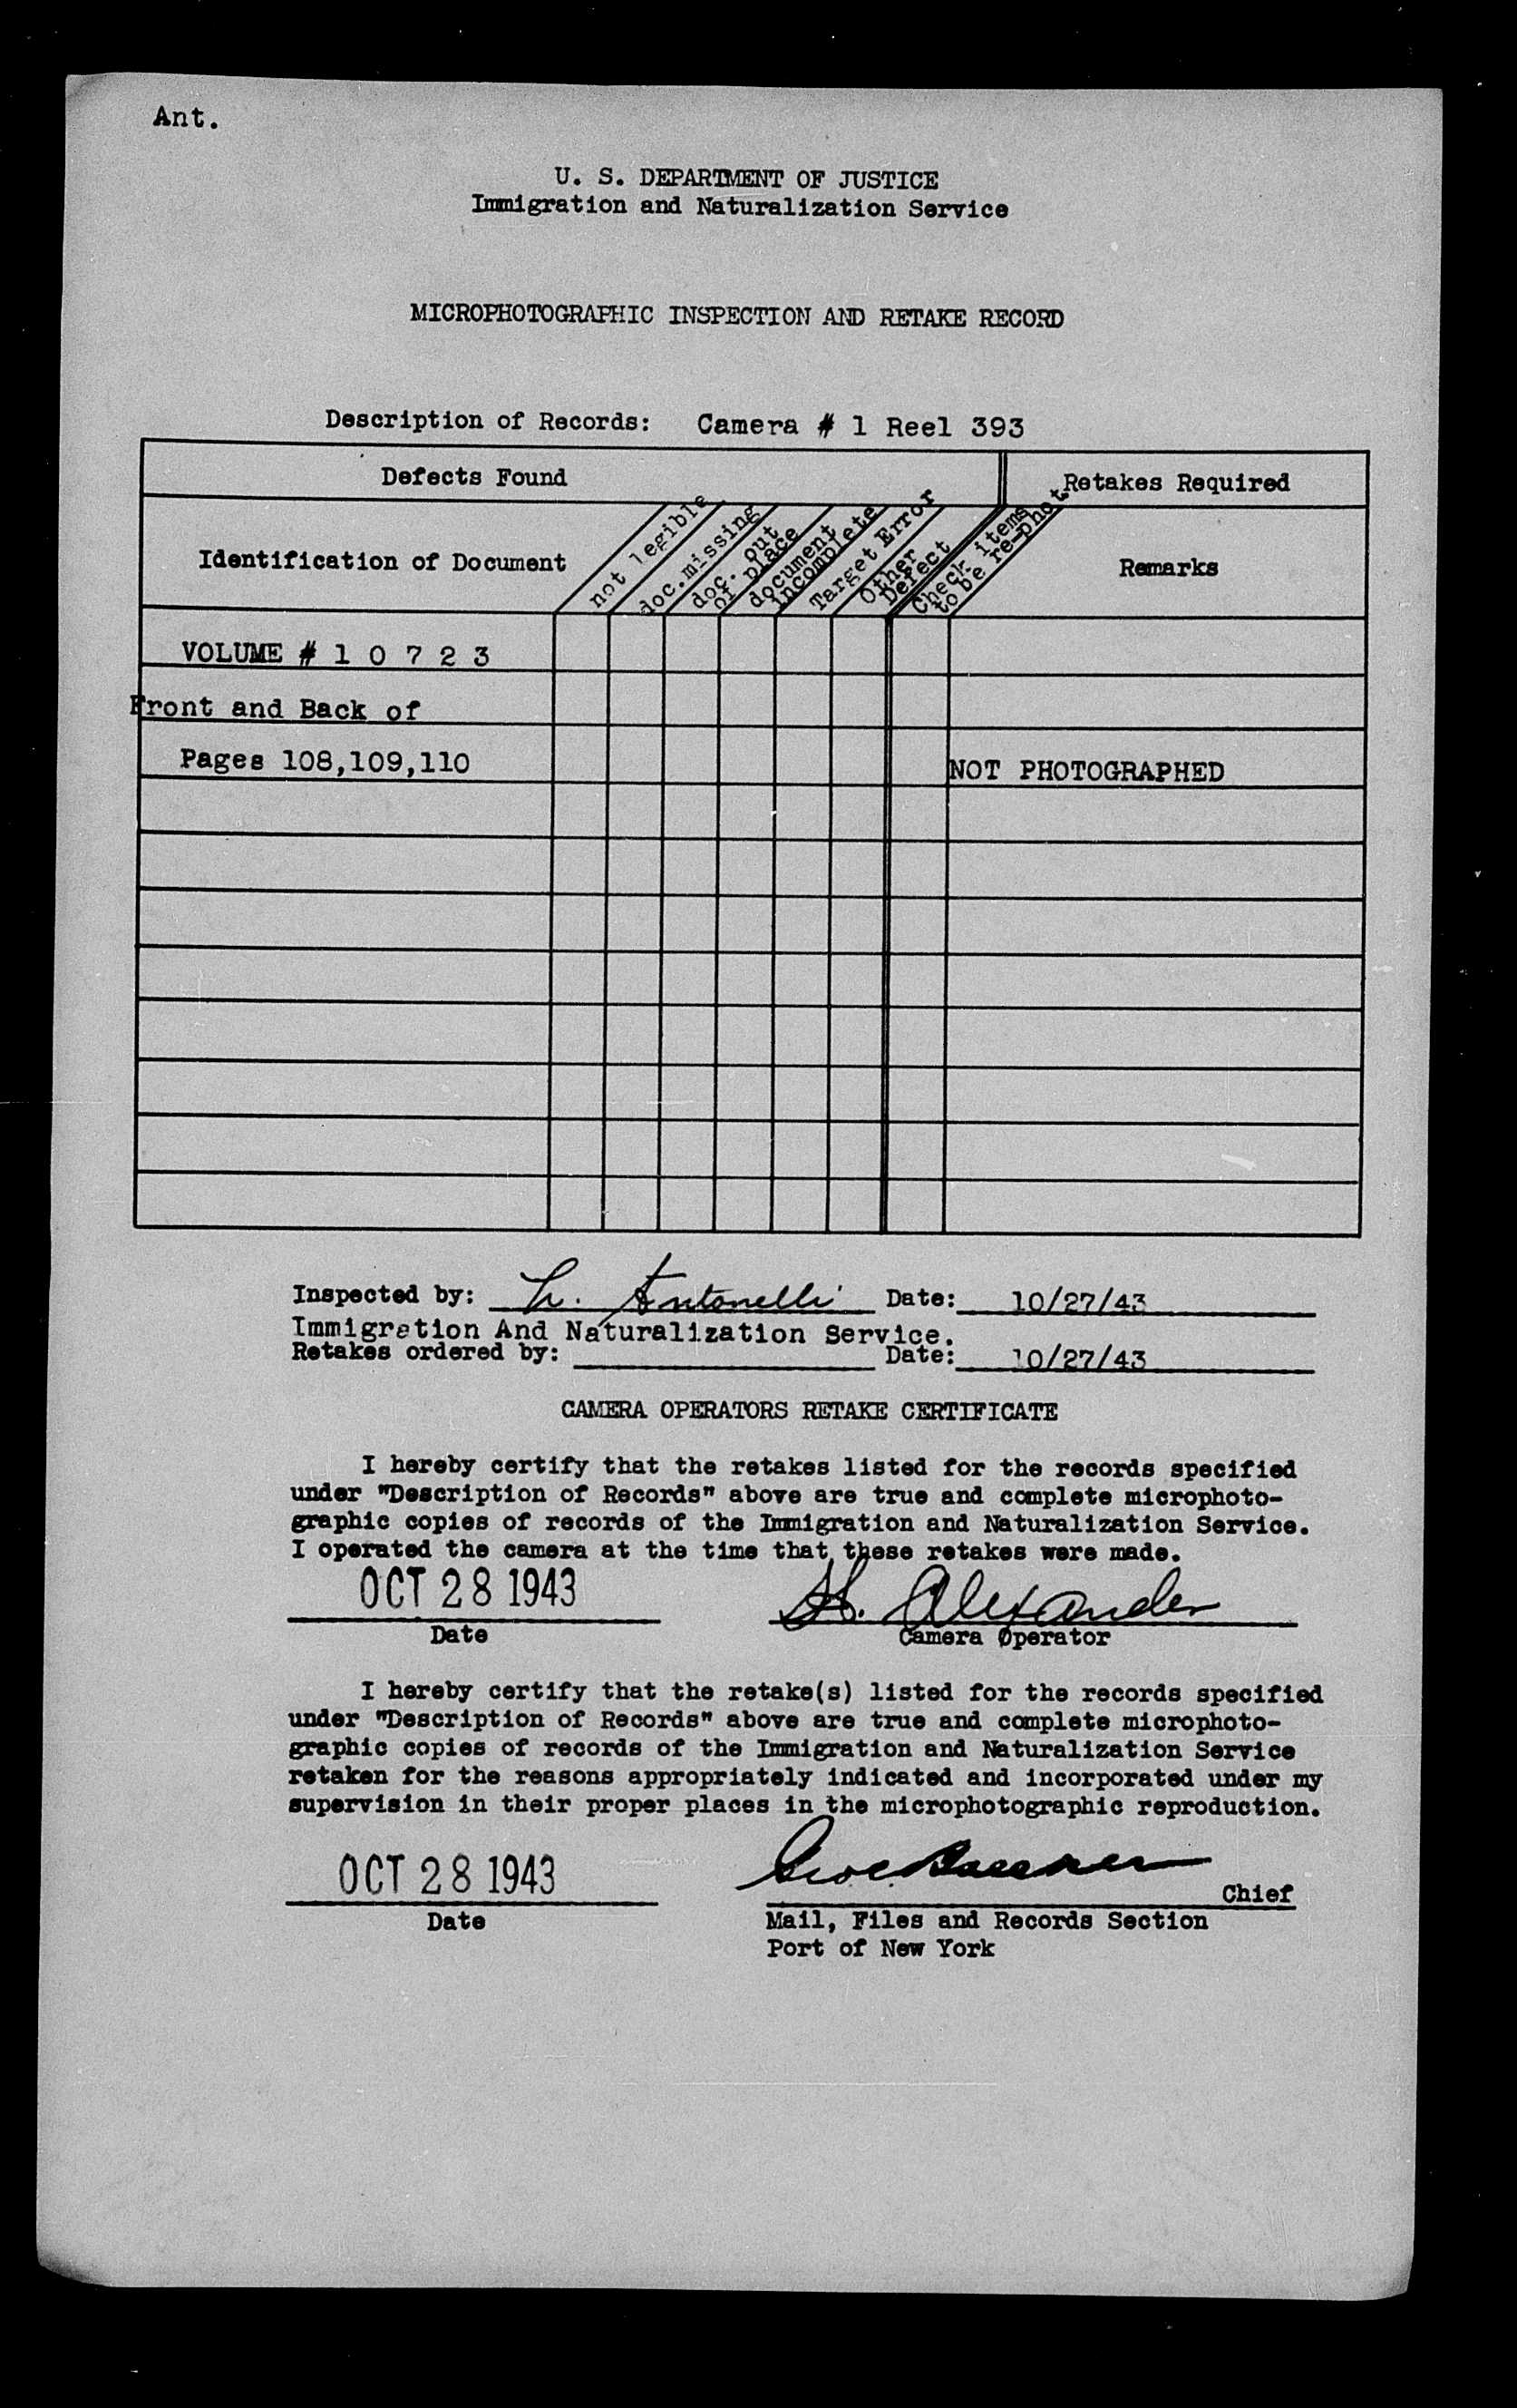 Ant.
U. S. DEPARTMENT OF JUSTICE
Immigration and Naturalization Service
MICROPHOTOGRAPHIC INSPECTION AND RETAKE RECORD
Description of Records: Camera # 1 Reel 393
Defects Found
Retakes Required
Identification of Document
not legible
doc.missing
doc. out
of place
document
incomplete
Target Error
Other
Defect
Check items
to be re-phot.
Remarks
VOLUME # 1 0 7 2 3
Front and Back of
Pages 108,109,110
NOT PHOTOGRAPHED
Inspected by: L. Antonelli Date: 10/27/43
Immigration And Naturalization Service.
Retakes ordered by: Date: 10/27/43
CAMERA OPERATORS RETAKE CERTIFICATE
I hereby certify that the retakes listed for the records specified
under "Description of Records" above are true and complete microphoto-
graphic copies of records of the Immigration and Naturalization Service.
I operated the camera at the time that these retakes were made.
OCT 28 1943
H. Alexander
Date
Camera Operator
I hereby certify that the retake(s) listed for the records specified
under "Description of Records" above are true and complete microphoto-
graphic copies of records of the Immigration and Naturalization Service
retaken for the reasons appropriately indicated and incorporated under my
supervision in their proper places in the microphotographic reproduction.
OCT 28 1943
Chief
Date
Mail, Files and Records Section
Port of New York